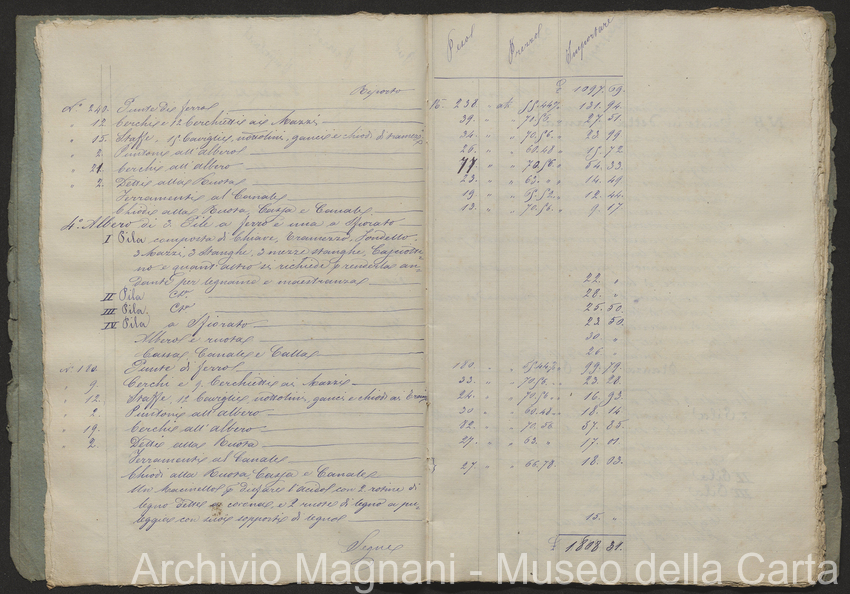 Pesol Prezzol Importare
Reporto ₤ 1097.69.
N.º 240. Punte di ferrol K. 238 a £ 55.447. 131.94
" 12. Cerchi e 12 Cerchietti ai Mazzi 39. " " 70.56 " 27.51
" 15. Staffe, 15 Caviglie, nottolini, ganci e chiodi di 34. " " 70.56. " 23.99
" 2. Puntoni all'alberol 26. " " 60.48 " 15.72
" 21. Cerchi all'albero 77 " " 70.56 " 54.33
" 2. Dette alla Ruota 23. " " 63. " " 14.49
Ferramenti al Canale 19 " " " 12.44
Chiodi alla Ruota, Cassa e Canale 13. " " 70.56. " 9.17
4.º Albero di 3. Pile a ferro e una a Sfiorato
I Pila composta di Chiave, Tramezzo, Fondello
3 Mazzi, 3 Stanghe, 3 mezze stanghe,
no e quant'altro si richiede p. renderla an-
dante per legname e maestranza 22. "
II Pila C.e 28. "
III Pila. C.e 25.50.
IV Pila a Sfiorato 23.50.
Albero e ruota 30. "
Cassa, Canale e Calla 26. "
N. 180. Punte di ferrol 180. " " 55.447. 99.79.
" 9. Cerchi e 9. Cerchietti ai Mazzi 33. " " 70.56. " 23.28.
" 12. Staffe, 12 Caviglie, nottolini, ganci e chiodi ai 24. " " 70.56. " 16.93
" 2. Puntoni all'albero 30 " " 60.48 " 18.14
" 19. Cerchi all'albero 82. " " 70.56 57.85.
" 2 Dette alla Ruota 27. " " 63. " 17.01
Ferramenti al Canale
Chiodi alla Ruota, Cassa e Canale 27. " " 66.78. 18.03.
Un Mannello p. l'acido con 2 rotine di
legno dette a corona, e 2 ruote di legno a pu-
leggia con suoi supporti di legnol 15. "
Segue ₤ 1808.31.
Archivio Magnani - Museo della Carta